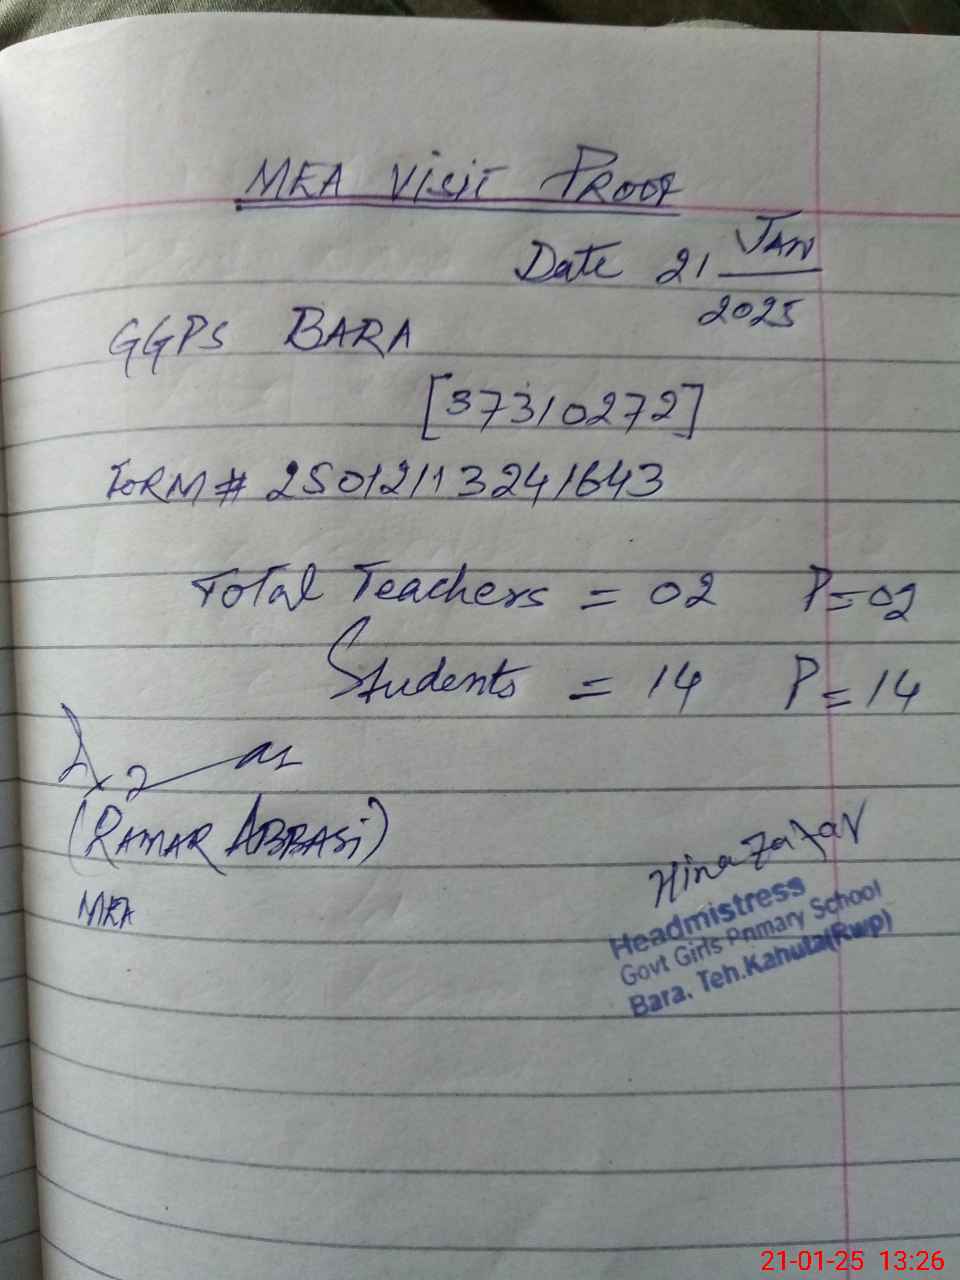 MEA Visit Proof
Date 21 Jan
2025
GGPS BARA
[37310272]
Form # 250121132416​43
Total Teachers = 02 P=02
Students = 14 P=14
(Ramar Abbasi)
MEA
Hina Zafar
Headmistress
Govt Girls Primary School
Bara. Teh.Kahuta(Rwp)
21-01-25 13:26